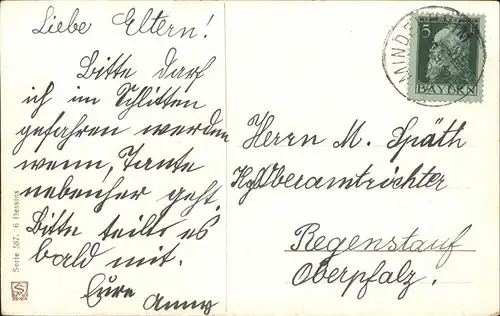 Liebe Eltern!
Bitte darf
ich im Schlitten
gefahren werden
wenn, Tante
nebenher geht.
Bitte teilt es
bald mit.
Eure
Anny
5
BAYERN
MINDE
Herrn M. Späth
Kgl Oberamtsrichter
Regenstauf
Oberpfalz.
Serie 567. 6 Dessins